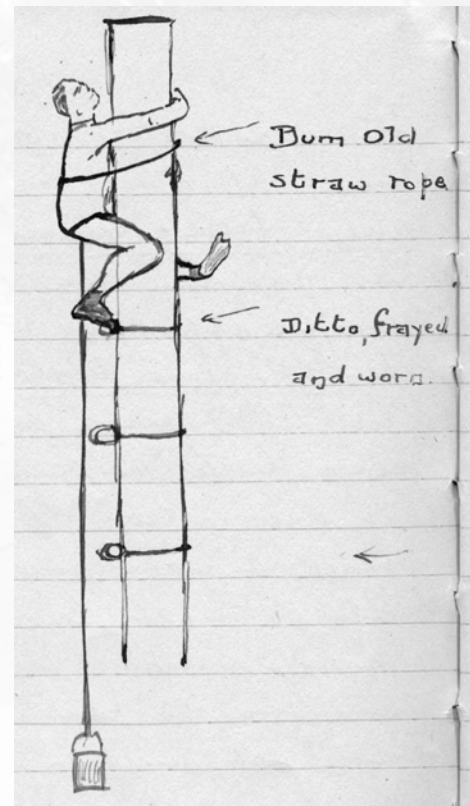 Bum Old
straw rope
Ditto, frayed
and worn.